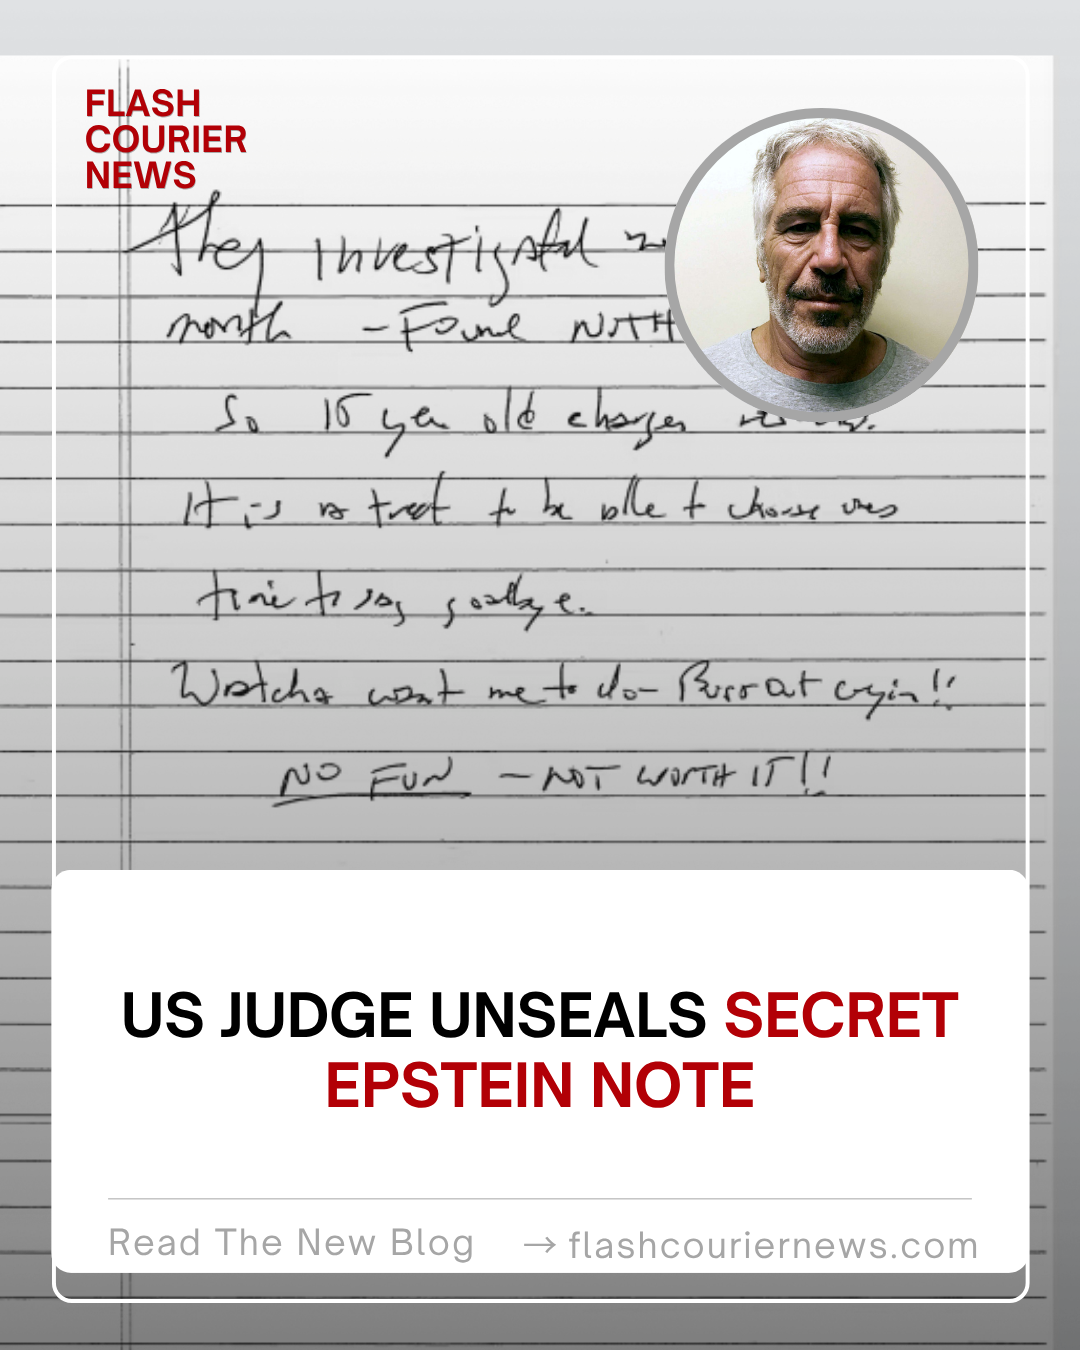 FLASH
COURIER
NEWS
They investigated
month - Found NOTH
So 15 year old charges
It is a treat to be able to choose ones
time to say goodbye.
Watcha want me to do - Burst out cryin!!
NO FUN - NOT WORTH IT!!
US JUDGE UNSEALS SECRET
EPSTEIN NOTE
Read The New Blog → flashcouriernews.com